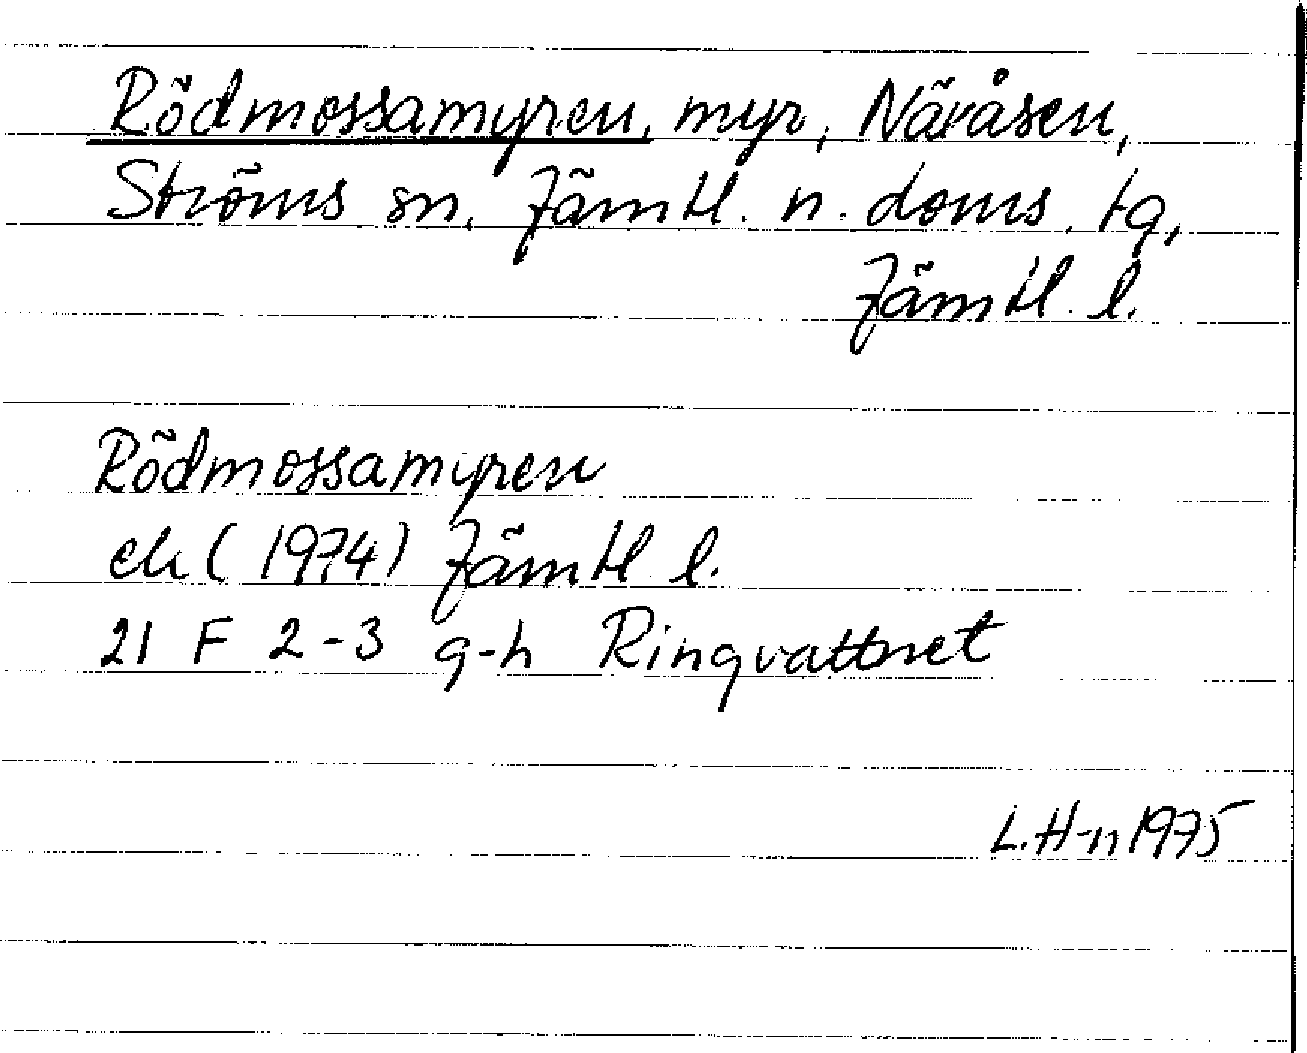 Rödmossamyren, myr, Näråsen,
Ströms sn, Jämtl. n. doms. tg,
Jämtl. l.
Rödmossamyren
ek (1974) Jämtl l.
21 F 2-3 g-h Ringvattnet
L.H-n 1975